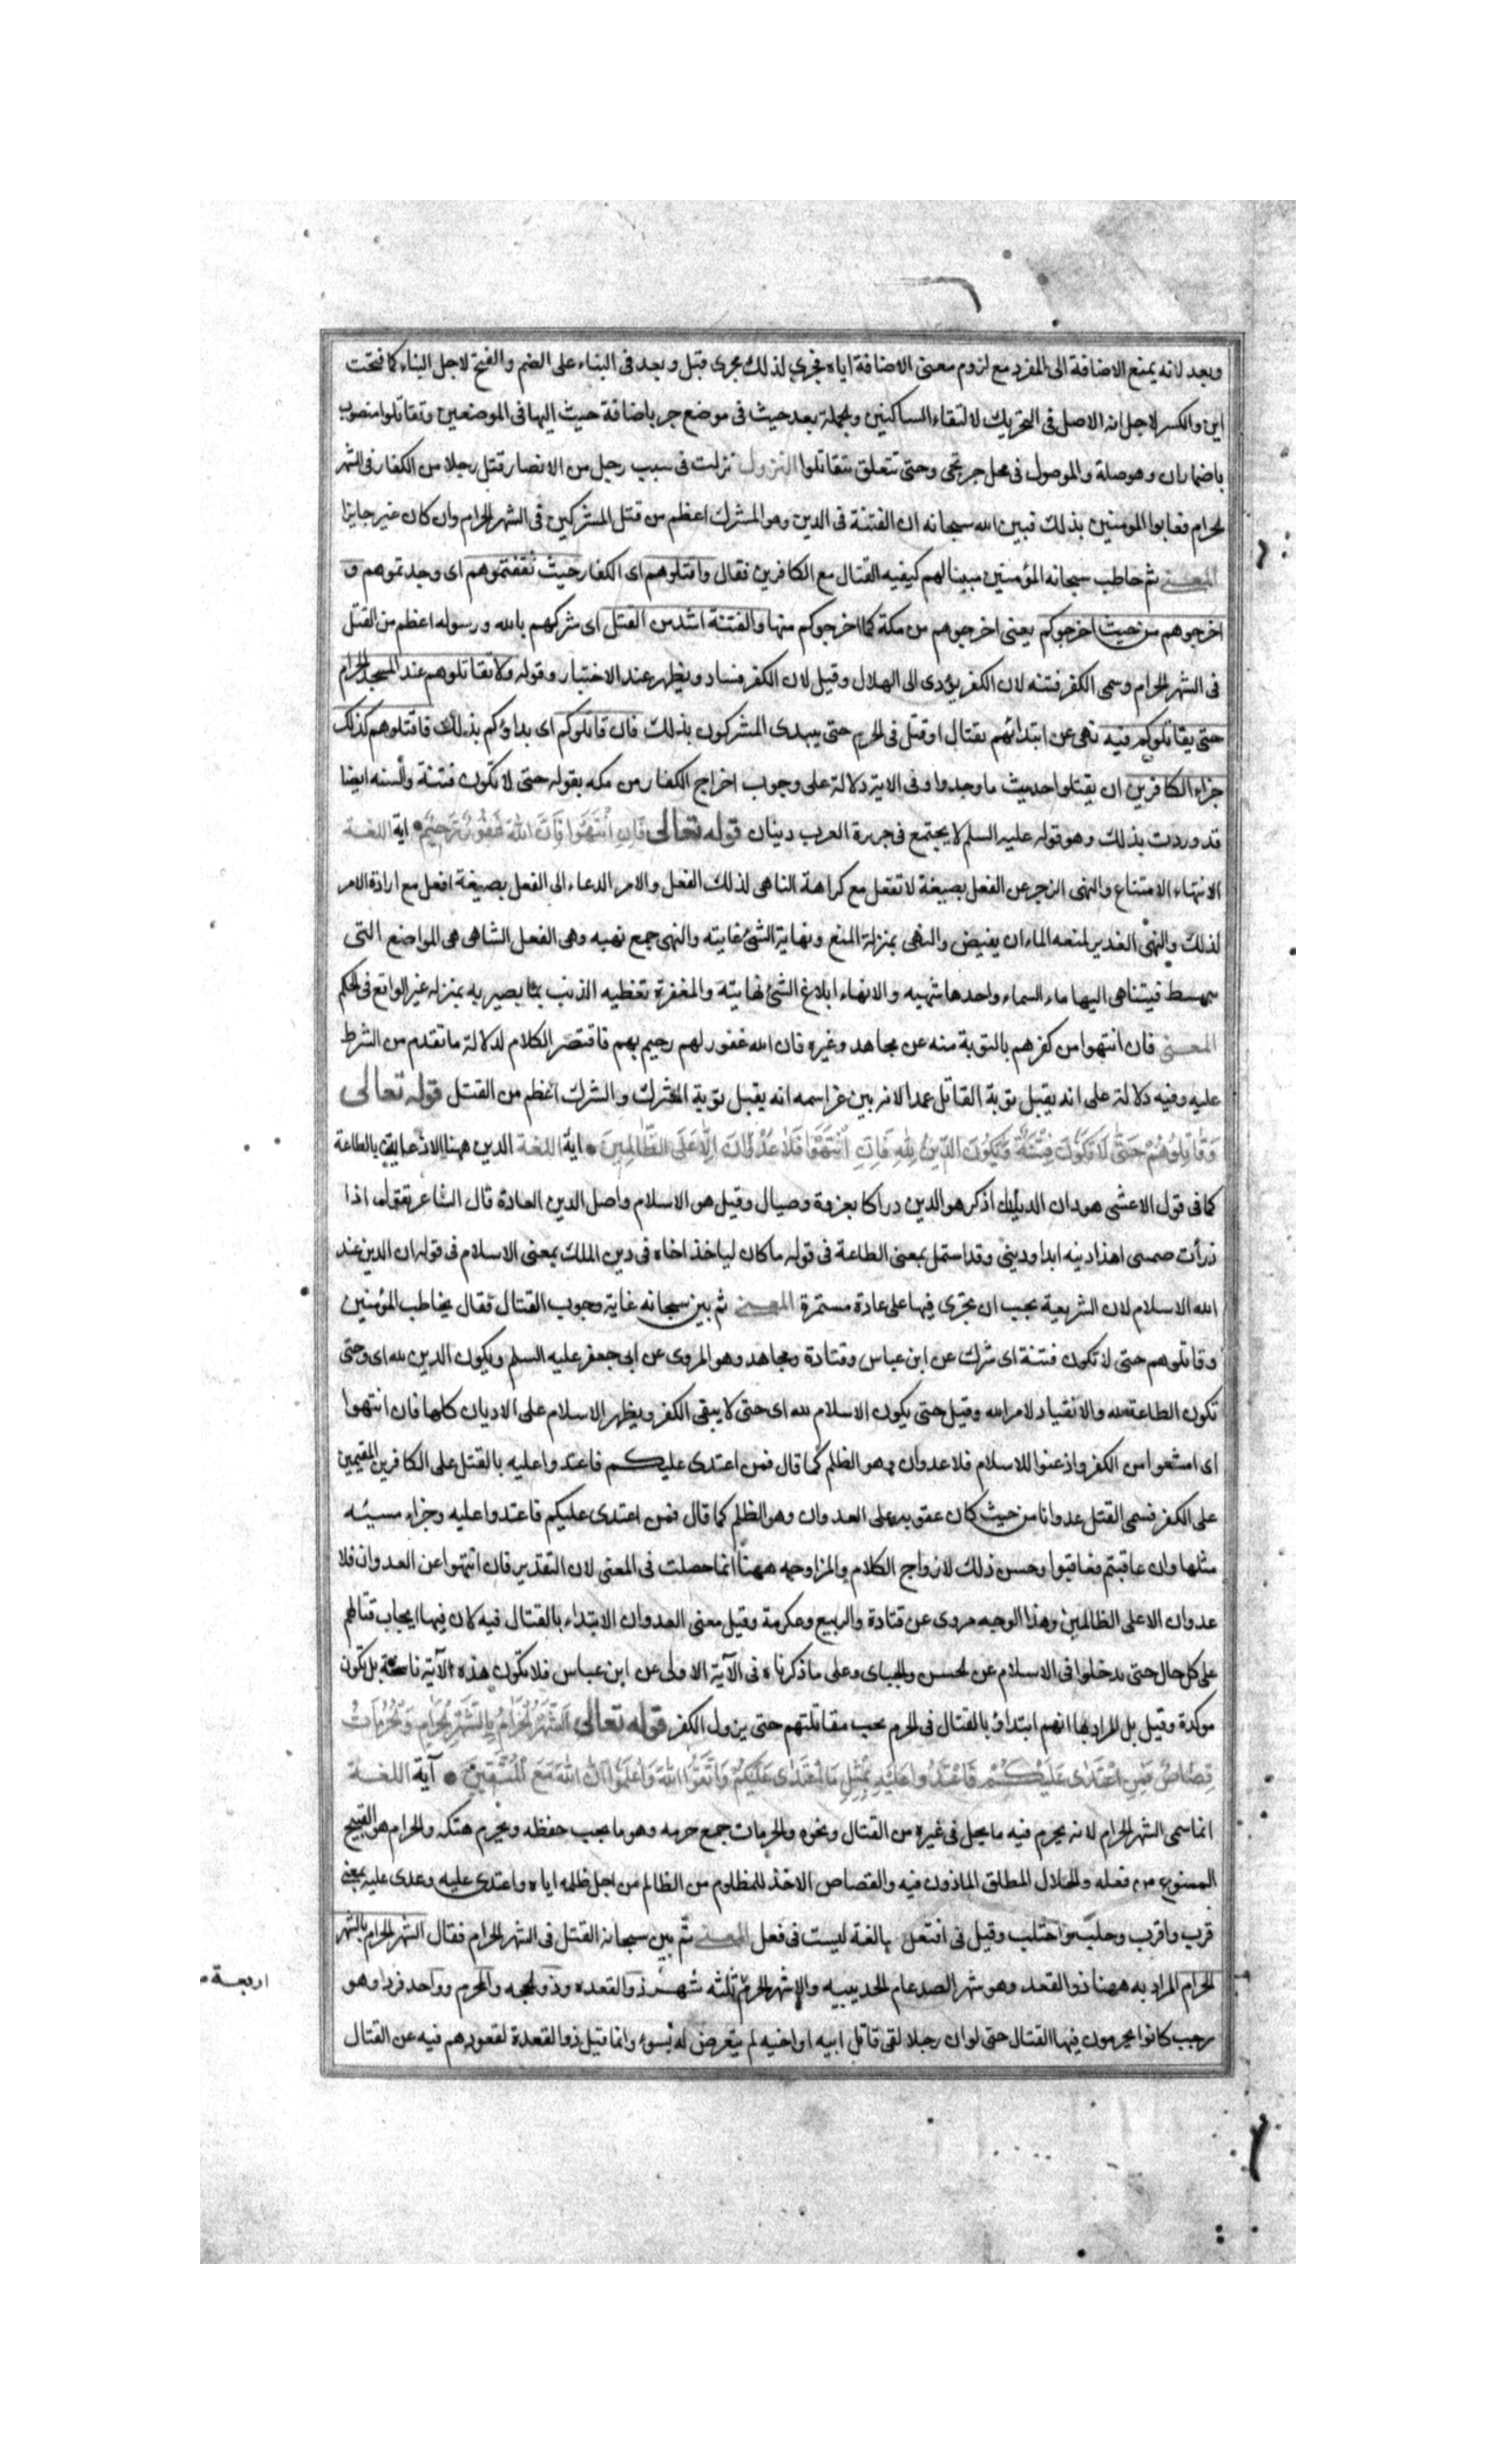 وبعد لانه يمنع الاضافة الى المفرد مع لزوم معنى الاضافة اياه فجرى لذلك مجرى قبل وبعد فى البناء على الضم والفتح لاجل البناء كما فتحت
اين والكسر لاجل انه الاصل فى التحريك لالتقاء الساكنين والجملة بعد حيث فى موضع جر باضافة حيث اليها فى الموضعين وتقاتلوا منصوب
باضمار ان وهو صلة والموصول فى محل جر بحتى وحتى تتعلق بتقاتلوا النزول نزلت فى سبب رجل من الانصار قتل رجلا من الكفار فى الشهر
الحرام فعابوا المومنين بذلك فبين الله سبحانه ان الفتنة فى الدين وهو الشرك اعظم من قتل المشركين فى الشهر الحرام وان كان غير جايزا
المعنى ثم خاطب سبحانه المؤمنين مبينا لهم كيفيه القتال مع الكافرين فقال واقتلوهم اى الكفار حيث ثقفتموهم اى وجدتموهم و
اخرجوهم من حيث اخرجوكم يعنى اخرجوهم من مكة كما اخرجوكم منها والفتنة اشد من القتل اى شركهم بالله ورسوله اعظم من القتل
فى الشهر الحرام وسمى الكفر فتنه لان الكفر يؤدى الى الهلاك وقيل لان الكفر فساد ويظهر عند الاختبار وقوله ولا تقاتلوهم عند المسجد الحرام
حتى يقاتلوكم فيه نهى عن ابتدائهم بقتال او قتل فى الحرم حتى يبدى المشركون بذلك فان قاتلوكم اى بداؤكم بذلك فاقتلوهم كذلك
جزاء الكافرين ان يقتلوا حيث ما وجدوا وفى الاية دلالة على وجوب اخراج الكفار من مكه بقوله حتى لا تكون فتنة والسنه ايضا
قد وردت بذلك وهو قوله عليه السلم لا يجتمع فى جزيرة العرب دينان قوله تعالى فَاِنِ انْتَهَوْا فَاِنَّ اللهَ غَفُورٌ رَحِيمٌ اية اللغة
الانتهاء الامتناع والنهى الزجر عن الفعل بصيغة لا تفعل مع كراهة الناهى لذلك الفعل والامر الدعاء الى الفعل بصيغة افعل مع ارادة الامر
لذلك والنهى الغدير لمنعه الماء ان يفيض والنهى بمنزلة المنع ونهاية الشئ غايته والنهى جمع نهيه وهى الفعل الشاهى هى المواضع التى
فيتناهى اليها ماء السماء واحدها والانهاء ابلاغ الشئ نهايته والمغفرة تغطيه الذنب بما يصير به بمنزله غير الواقع فى الحكم
المعنى فان انتهوا من كفرهم بالتوبة منه عن مجاهد وغيره فان الله غفور لهم رحيم بهم فاقتصر الكلام لدلالة ما تقدم من الشرط
عليه وفيه دلالة على انه يقبل توبة القاتل عمدا لانه بين عز اسمه انه يقبل توبة المشرك والشرك اعظم من القتل قوله تعالى
وَقَاتِلُوهُمْ حَتَّى لَا تَكُونَ فِتْنَةٌ وَيَكُونَ الدِّينُ لِلَّهِ فَاِنِ انْتَهَوْا فَلَا عُدْوَانَ اِلَّا عَلَى الظَّالِمِينَ اية اللغة الدين ههنا الاذعان بالطاعة
كما فى قول الاعشى هو دان اذكر هو الدين دراكا بغزوة وصيال وقيل هو الاسلام واصل الدين العادة قال الشاعر تقول اذا
اهذا دينه ابدا ودينى وقد استعمل بمعنى الطاعة فى قوله ما كان لياخذ اخاه فى دين الملك بمعنى الاسلام فى قوله ان الدين عند
الله الاسلام لان الشريعة يجب ان يجرى فيها على عادة مستمرة المعنى ثم بين سبحانه غاية وجوب القتال فقال يخاطب المؤمنين
وقاتلوهم حتى لا تكون فتنة اى شرك عن ابن عباس وقتادة ومجاهد وهو المروى عن ابى جعفر عليه السلم ويكون الدين لله اى وحتى
تكون الطاعة لله والانقياد لامر الله وقيل حتى يكون الاسلام لله اى حتى لا يبقى الكفر ويظهر الاسلام على الاديان كلها فان انتهوا
اى امتنعوا من الكفر واذعنوا للاسلام فلا عدوان وهو الظلم كما قال فمن اعتدى عليكم فاعتدوا عليه بالقتل على الكافرين المقيمين
على الكفر فسمى القتل عدوانا من حيث كان عقوبه على العدوان وهو الظلم كما قال فمن اعتدى عليكم فاعتدوا عليه وجزاء سيئه
مثلها وان عاقبتم فعاقبوا وحسن ذلك لازواج الكلام والمزاوجه ههنا انما حصلت فى المعنى لان التقدير فان انتهوا عن العدوان فلا
عدوان الا على الظالمين وهذا الوجه مروى عن قتادة والربيع وعكرمة وقيل معنى العدوان الابتداء بالقتال فيه لان فيها ايجاب قتالهم
على كل حال حتى يدخلوا فى الاسلام عن الحسن والجباى وعلى ما ذكرناه فى الآية الاولى عن ابن عباس فلا تكون هذه الآية ناسخة بل تكون
موكدة وقيل بل المراد بها انهم ابتداؤ بالقتال فى الحرم يجب مقاتلتهم حتى يزول الكفر قوله تعالى اَلشَّهْرُ الْحَرَامُ بِالشَّهْرِ الْحَرَامِ وَالْحُرُمَاتُ
قِصَاصٌ فَمَنِ اعْتَدَى عَلَيْكُمْ فَاعْتَدُوا عَلَيْهِ بِمِثْلِ مَا اعْتَدَى عَلَيْكُمْ وَاتَّقُوا اللهَ وَاعْلَمُوا اَنَّ اللهَ مَعَ الْمُتَّقِينَ آية اللغة
انما سمى الشهر الحرام لانه يحرم فيه ما يحل فى غيره من القتال ونحوه والحرمات جمع حرمه وهو ما يجب حفظه ويحرم هتكه والحرام هو القبيح
الممنوع من فعله والحلال المطلق الماذون فيه والقصاص الاخذ للمظلوم من الظالم من اجل ظلمه اياه واعتدى عليه وعدى عليه بمعنى
قرب واقرب وجلب واجتلب وقيل فى افتعل بالغة ليست فى فعل المعنى ثم بين سبحانه القتل فى الشهر الحرام فقال الشهر الحرام بالشهر
الحرام المراد به ههنا ذو القعد وهو شهر الصد عام الحديبيه والاشهر الحرم ثلثه شهر ذو القعده وذو الحجه والمحرم وواحد فرد وهو
اربعة
رجب كانوا يحرمون فيها القتال حتى لو ان رجلا لقى قاتل ابيه او اخيه لم يتعرض له بسوء وانما قيل ذو القعدة لقعودهم فيه عن القتال